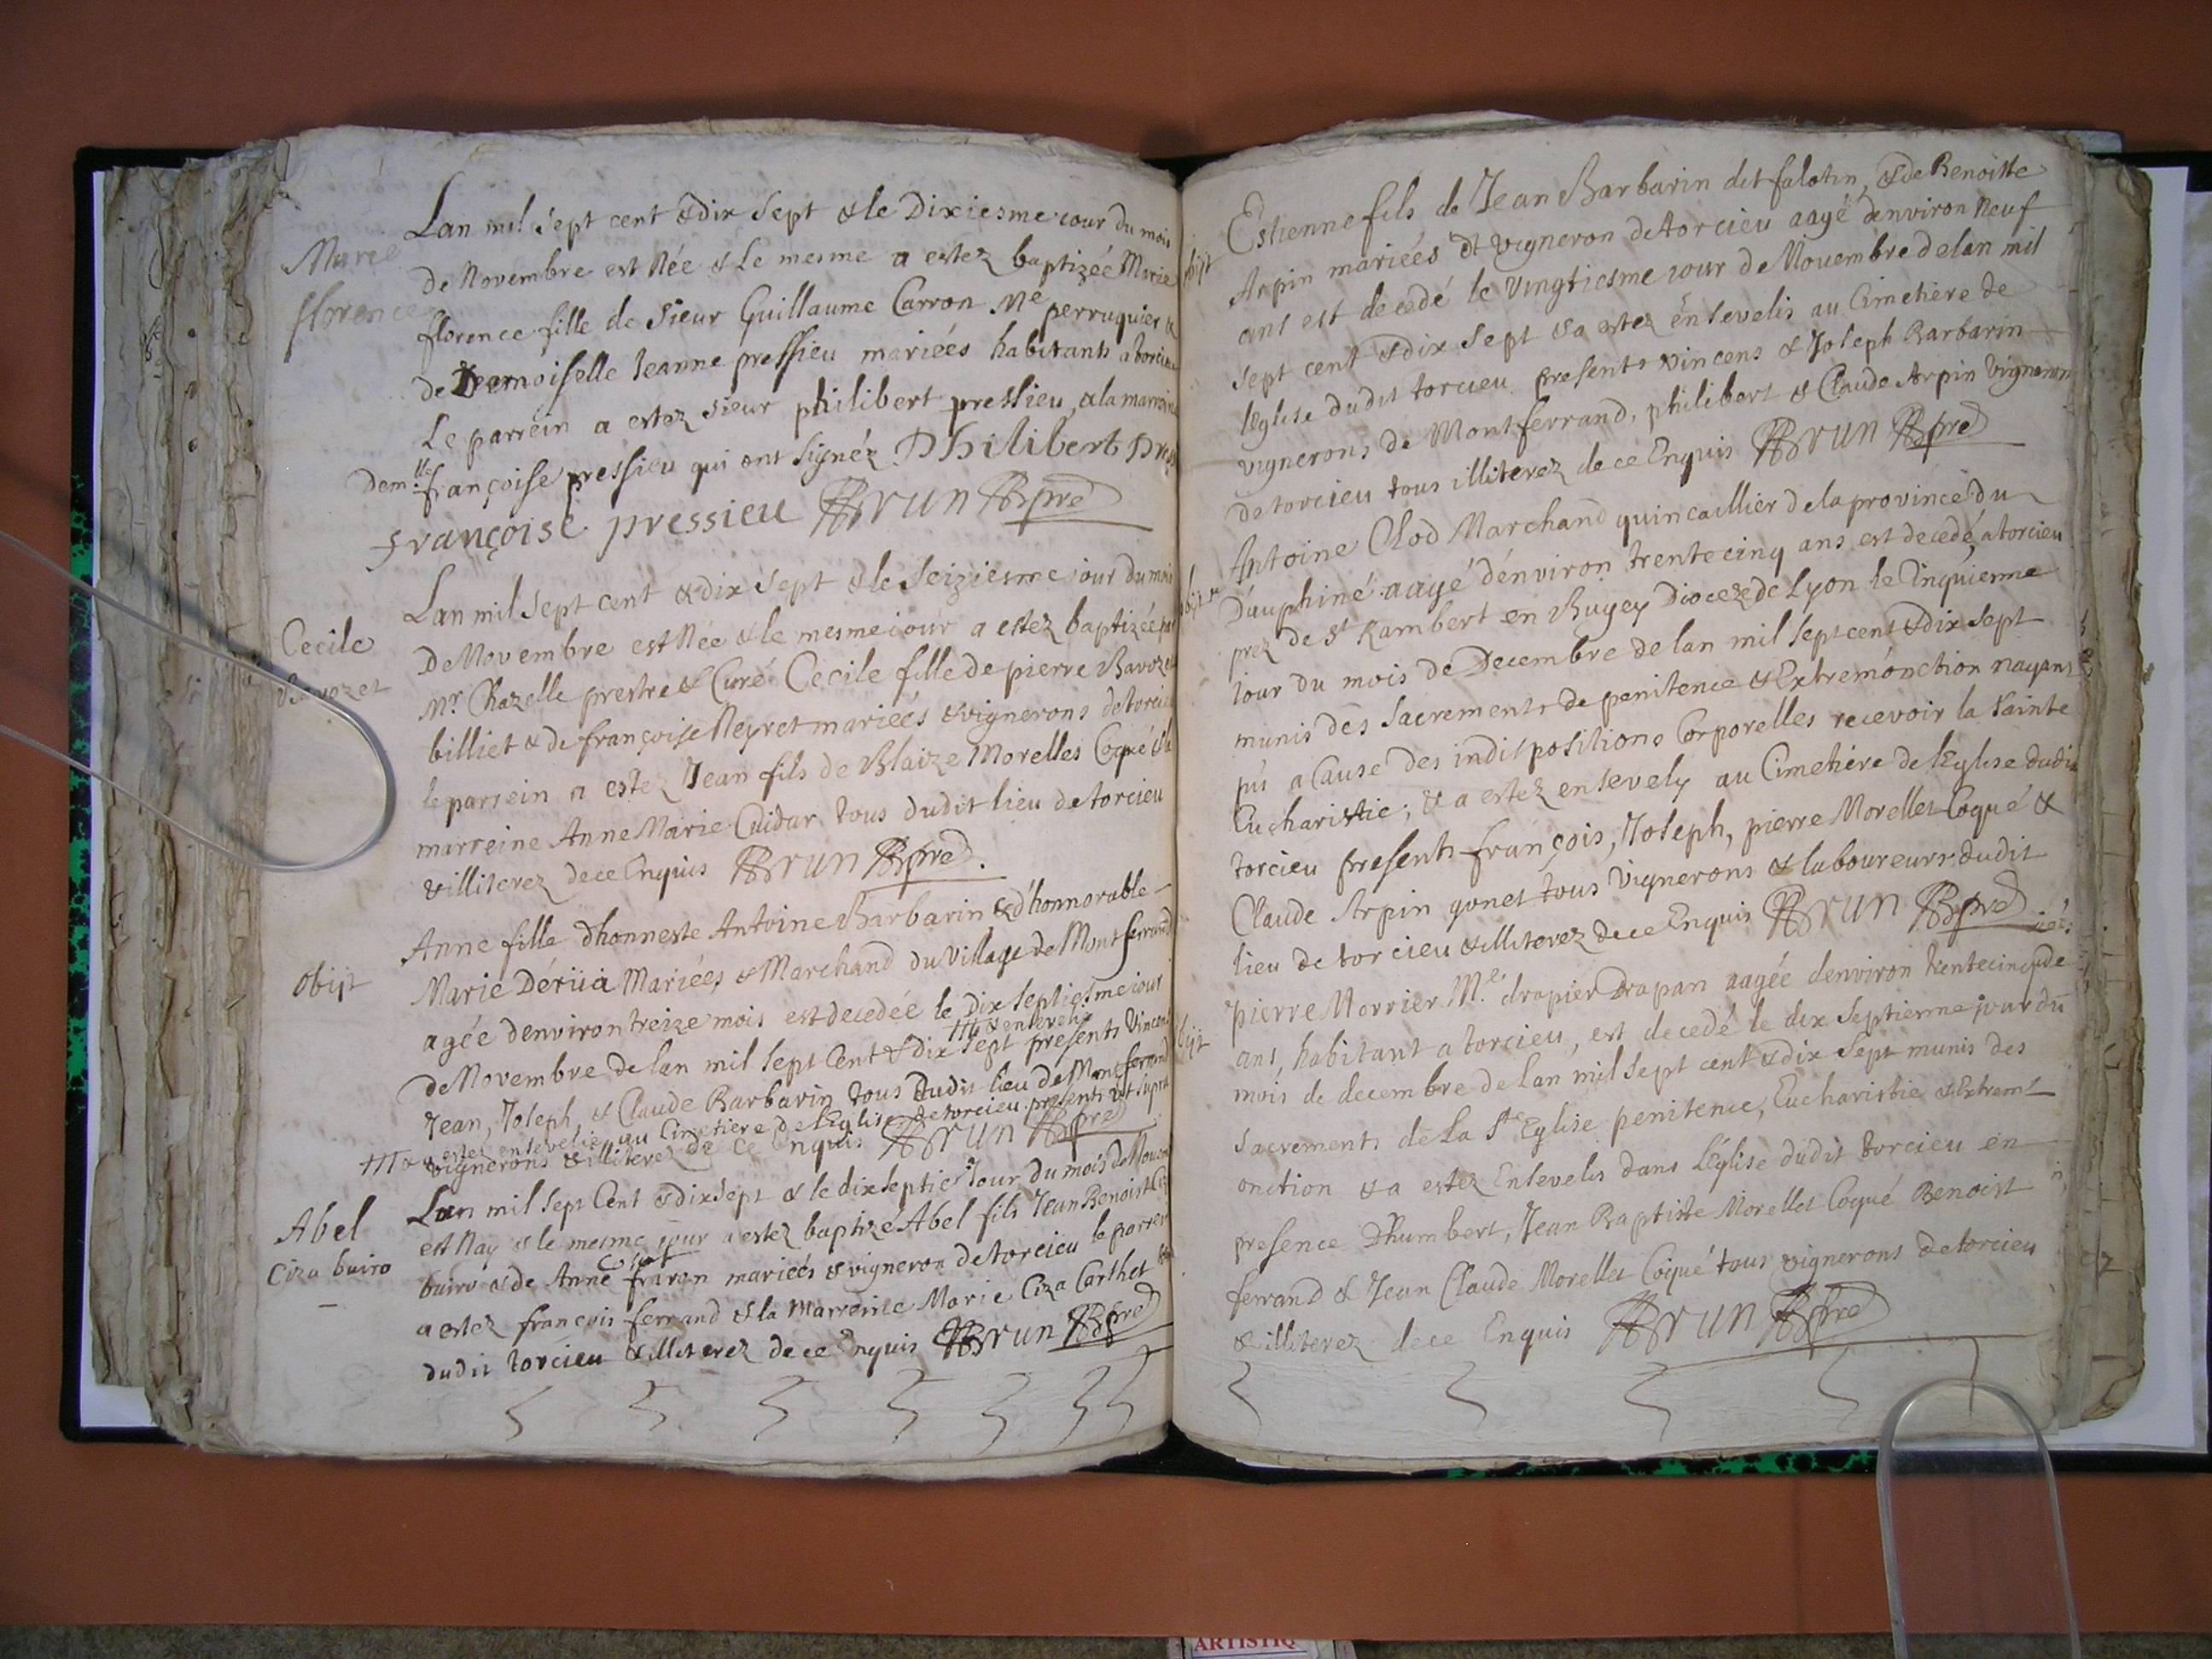 Marie
florence
Lan mil sept cent & dix sept & le Dixiesme iour du mois
de Novembre est Née & le mesme a estez baptizée Marie
florence fille de sieur Guillaume Carron Me perruquier &
de Demoiselle Jeanne pressieu mariées habitants a torcieu
Le parrein a estez sieur philibert pressieu, & la marreine
demlle françoise pressieu qui ont signéz Philibert Press
françoise pressieu Brun pre
Cecile
Bavozet
Lan mil sept cent & dix sept & le seiziesme jour du mois
De Novembre est Née & le mesme iour a estez baptizée par
Mr Chazelle prestre & Curé Cecile fille de pierre Bavozet
billiet & de françoise Neyret mariées & vignerons de torcieu
le parrein a estez Jean fils de Blaize Morelles Coqué & la
marreine Anne Marie Cuidar tous dudit lieu de torcieu
& illiterez de ce Enquis Brun pre
obijt
Anne fille dhonneste Antoine Barbarin & d'honnorable
Marie Dériia Mariées & Marchand du Village de Montferrand
agée denviron treize mois est decedée le Dix septiesme iour
de Novembre de lan mil sept Cent & dix sept presents Vincent
Jean, Joseph & Claude Barbarin tous dudit lieu de Montferand
& a estez ensevelie au Cimetiere de lEglise de torcieu presents ut supra
vignerons & illiterez de ce Enquis Brun pre
Abel
Ciza buiro
Lan mil sept Cent & dix sept & le dix septie Jour du mois de Novem
est Nay & le mesme jour a estez baptizé Abel fils Jean Benoist Ciza
buiro & de Anne fraran mariées & vigneron de torcieu le parrein
a estez françois ferrand & la Marreine Marie Ciza Carthot
dudit torcieu & illiterez de ce Enquis Brun pre
obijt
Estienne fils de Jean Barbarin dit falotin, & de Benoiste
Arpin mariées & vigneron de torcieu aagé denviron Neuf
ans est decedé le Vingtiesme iour de Novembre de lan mil
sept cent & dix sept & a estez énsevelis au Cimetiere de
lEglise dudit torcieu presents vincens & Joseph Barbarin
vignerons de Montferrand, philibert & Claude Arpin Vignerons
de torcieu tous illiterez de ce Enquis Brun pre
obijt
Antoine Clod Marchand quincaillier de la province du
Dauphiné aagé d'environ trente cinq ans est decedé a torcieu
prez de St Rambert en Bugey Dioceze de Lyon le Cinquienme
iour du mois de Decembre de lan mil sept cent & dix sept
munis des sacrements de penitence & Extremonction nayant
pu a Cause des indispositions Corporelles recevoir la sainte
Eucharistie; & a estez ensevely au Cimetiere de lEglise dudit
torcieu presents françois, Joseph, pierre Morellet Coqué &
Claude Arpin gonet tous Vignerons & laboureurs dudit
lieu de torcieu & illiterez de ce Enquis Brun pre
obijt
pierre Morrier Me drapier Drapan aagée denviron trente cinq de
ans, habitant a torcieu, est decedé le dix septienme jour du
mois de decembre de lan mil sept cent & dix sept munis des
sacrements de la Ste Eglise penitence, Eucharistie & Extrem
onction & a estez Ensevelis dans lEglise dudit torcieu en
presence Dhumbert, Jean Baptiste Morellet Coqué Benoist
ferrand & Jean Claude Morellet Coqué tous vignerons de torcieu
& illiterez de ce Enquis Brun pre
ARTISTIQ